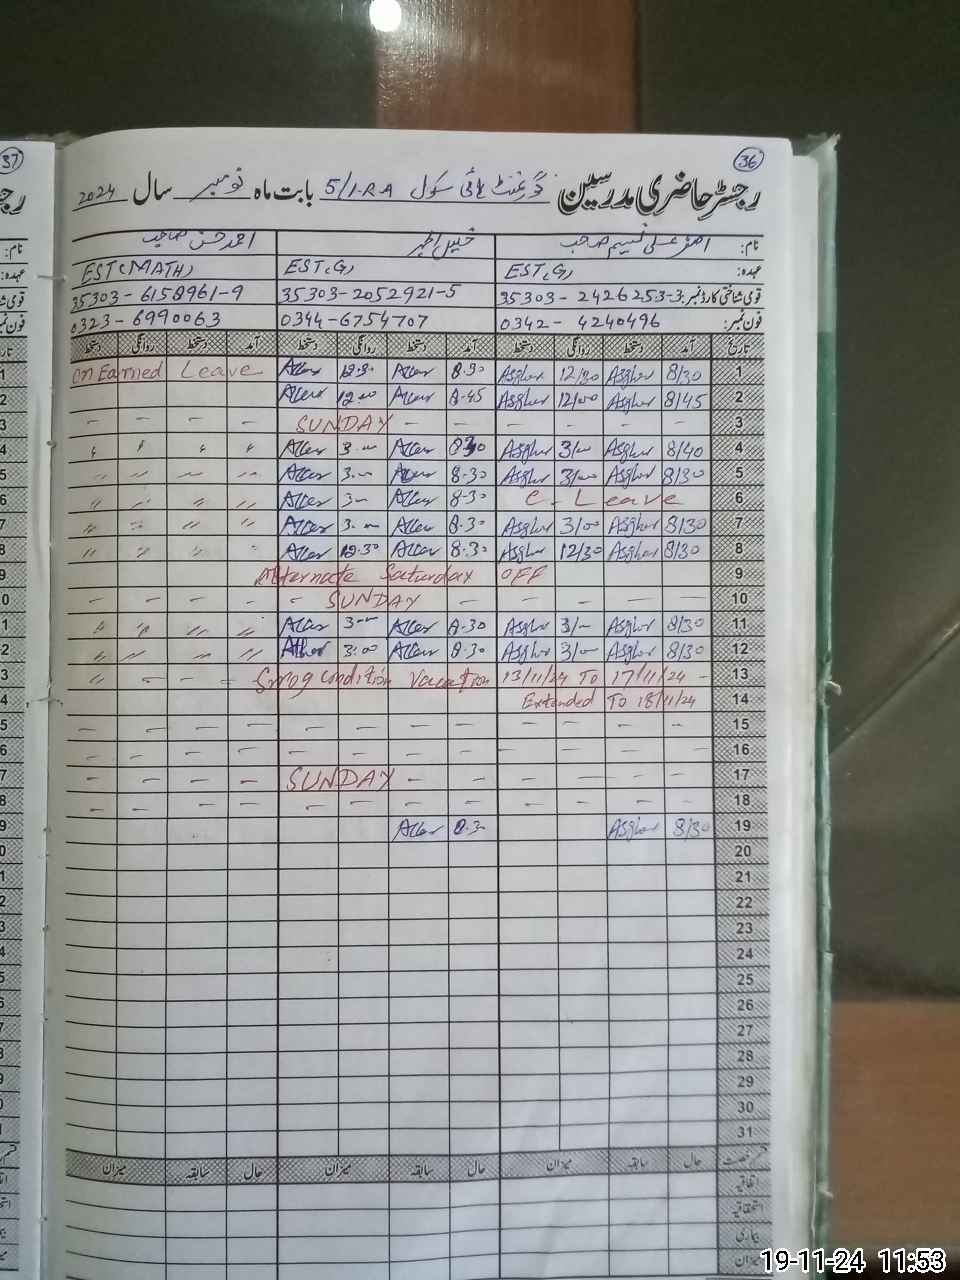 37 36
رجسٹر حاضری مدرسین گورنمنٹ ہائی سکول 5/1-R.A بابت ماہ نومبر سال 2024
نام: اصغر علی نسیم صاحب احمد حسن صاحب
عہدہ: EST(G) EST(G) EST(MATH)
قومی شناختی کارڈ نمبر: 35303-2426253-3 35303-2052921-5 35303-6158961-9
فون نمبر: 0342-4240496 0344-6754707 0323-6990063
تاریخ آمد دستخط روانگی دستخط آمد دستخط روانگی دستخط آمد دستخط روانگی دستخط
1 8/30 Asghar 12/30 Asghar 8.30 12.30 On Earned Leave
2 8/45 Asghar 12/00 Asghar 8-45 12.00
3 - - - - - - SUNDAY - - -
4 8/40 Asghar 3/- Asghar 3.- 〃 〃 〃 〃
5 8/30 Asghar 3/00 Asghar 8.30 3.- 〃 〃 〃 〃
6 C. Leave 8.30 3- 〃 〃 〃 〃
7 8/30 Asghar 3/00 Asghar 8.30 3.- 〃 〃 〃 〃
8 8/30 Asghar 12/30 Asghar 8.30 12.30 〃 〃 〃 〃
9 Alternate Saturday OFF
10 - - - - - - SUNDAY - - - - -
11 8/30 Asghar 3/- Asghar 8.30 3-- 〃 〃 〃 〃
12 8/30 Asghar 3/- Asghar 8.30 3.00 〃 〃 〃 〃
13 〃 - - - Smog condition Vacation 13/11/24 To 17/11/24 -
14 Extended To 18/11/24
15 - - - - - - - - - - - -
16 - - - - - - - - - - - -
17 - - - - SUNDAY - - - - - -
18 - - - - - - - - - - - -
19 8/30 Asghar 8.30
20
21
22
23
24
25
26
27
28
29
30
31
قسم رخصت حال سابقہ میزان حال سابقہ میزان حال سابقہ میزان
اتفاقیہ
استحقاقیہ
بیماری
میزان
19-11-24 11:53